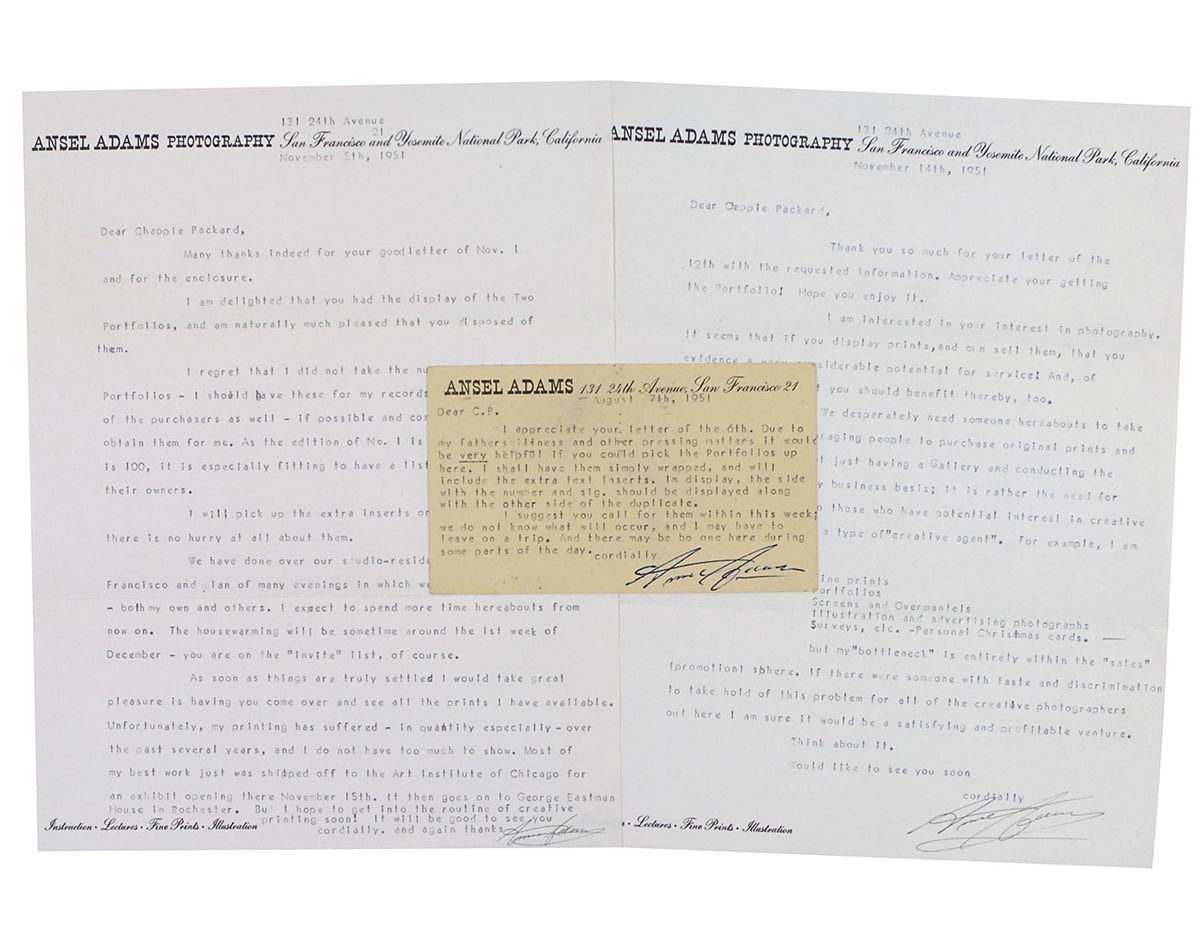 131 24th Avenue
21
ANSEL ADAMS PHOTOGRAPHY San Francisco and Yosemite National Park, California
November 5th, 1951
Dear Chappie Packard,
Many thanks indeed for your goodletter of Nov. 1
and for the enclosure.
I am delighted that you had the display of the Two
Portfolios, and am naturally much pleased that you disposed of
them.
I regret that I did not take the nu
Portfolios - I should have these for my records
of the purchasers as well - if possible and con
obtain them for me. As the edition of No. 1 is
is 100, it is especially fitting to have a list
their owners.
I will pick up the extra inserts or
there is no hurry at all about them.
We have done over our studio-reside
Francisco and plan of many evenings in which we
- both my own and others. I expect to spend more time hereabouts from
now on. The housewarming will be sometime around the 1st week of
December - you are on the "invite" list, of course.
As soon as things are truly settled I would take great
pleasure is having you come over and see all the prints I have available.
Unfortunately, my printing has suffered - in quantity especially - over
the past several years, and I do not have too much to show. Most of
my best work just was shipped off to the Art Institute of Chicago for
an exhibit opening there November 15th. It then goes on to George Eastman
House in Rochester. But I hope to get into the routine of creative
printing soon! It will be good to see you
cordially. and again thanks
Ansel Adams
Instruction · Lectures · Fine Prints · Illustration
ANSEL ADAMS 131 24th Avenue, San Francisco 21
August 7th, 1951
Dear C.P.
I appreciate your letter of the 6th. Due to
my fathers illness and other pressing matters it would
be very helpful if you could pick the Portfolios up
here. I shall have them simply wrapped, and will
include the extra text inserts. In display, the side
with the number and sig. should be displayed along
with the other side of the duplicate.
I suggest you call for them within this week;
we do not know what will occur, and I may have to
leave on a trip. And there may be bo one here during
some parts of the day. cordially
Ansel Adams
131 24th Avenue
ANSEL ADAMS PHOTOGRAPHY San Francisco and Yosemite National Park, California
November 14th, 1951
Dear Chappie Packard,
Thank you so much for your letter of the
12th with the requested information. Appreciate your getting
the Portfolio! Hope you enjoy it.
I am interested in your interest in photography.
It seems that if you display prints,and can sell them, that you
evidence a very considerable potential for service! And, of
you should benefit thereby, too.
We desperately need someone hereabouts to take
raging people to purchase original prints and
t just having a Gallery and conducting the
y business basis; it is rather the need for
o those who have potential interest in creative
a type of"creative agent". For example, I am
Fine prints
Portfolios
Screens and Overmantels
Illustration and advertising photographs
Surveys, etc. -Personal Christmas cards. —
but my"bottleneck" is entirely within the "sales"
(promotion) sphere. If there were someone with taste and discrimination
to take hold of this problem for all of the creative photographers
out here I am sure it would be a satisfying and profitable venture.
Think about it.
Would like to see you soon
cordially
Ansel Adams
· Lectures · Fine Prints · Illustration